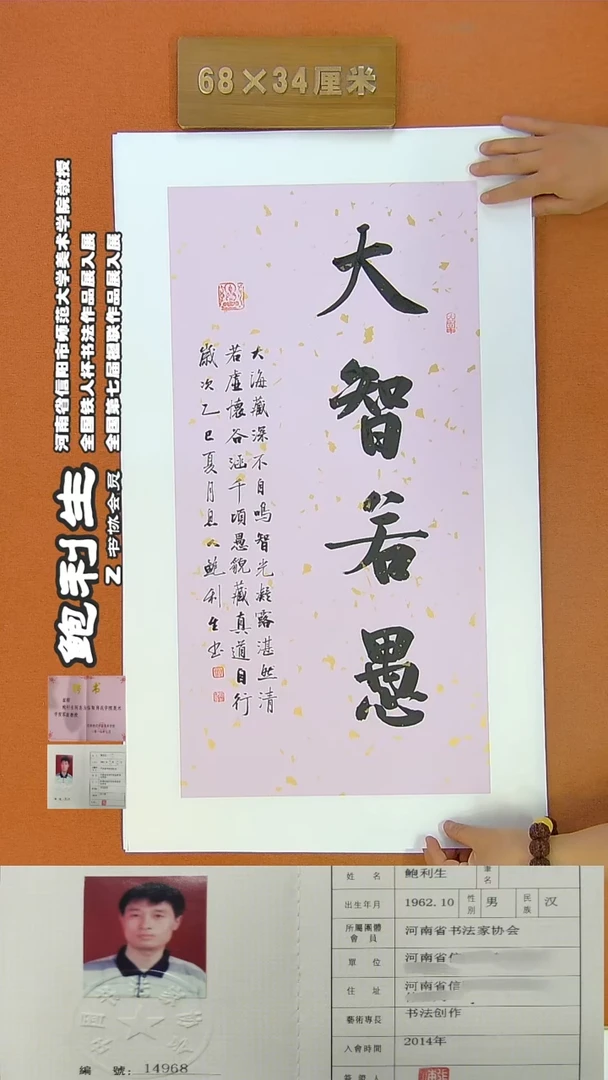 68×34厘米
大智若愚
大海藏深不自鸣智光凝露湛然清
若虚怀谷涵千顷愚貌藏真道自行
岁次乙巳夏月
鲍利生书
河南省信阳市师范大学美术学院教授
全国铁人杯书法作品展入展
全国第七届楹联作品展入展
鲍利生
Z 书协会员
姓 名 鲍利生 笔名
出生年月 1962.10 性别 男 民族 汉
所屬團體會員 河南省书法家协会
單 位 河南省信
住 址 河南省信
藝術專長 书法创作
入會時間 2014年
簽證人
編 號: 14968